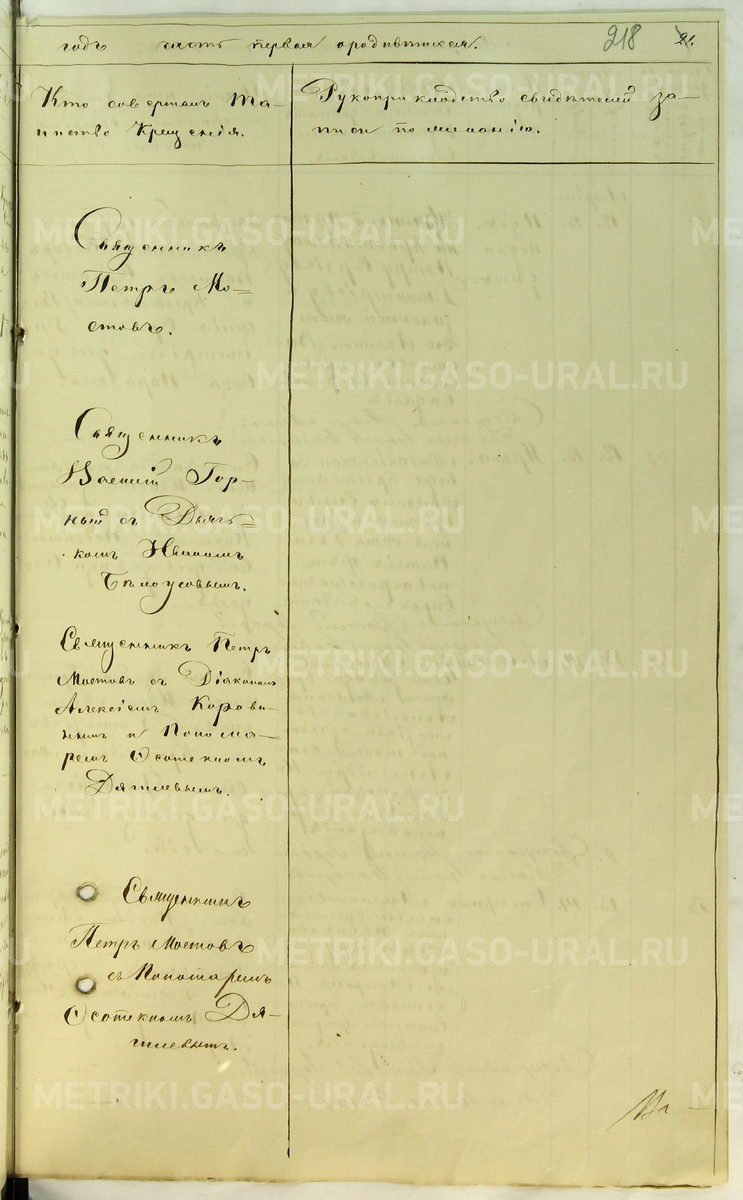 годъ часть первая о родившихся. 218 21.
Кто совершалъ Та-
инство Крещенія.
Рукоприкладство свидѣтелей за-
писи по желанію.
Священникъ
Петръ Мо-
стовъ.
Священникъ
Василій Гор-
ный съ Дьяч-
комъ Иваномъ
Бѣлоусовымъ.
Священникъ Петръ
Мостовъ съ Діакономъ
Алексіемъ Корови-
нымъ и Понома-
ремъ
Дятлевымъ.
Священникъ
Петръ Мостовъ
съ Пономаремъ
Дя-
тлевымъ.
METRIKI.GASO-URAL.RU